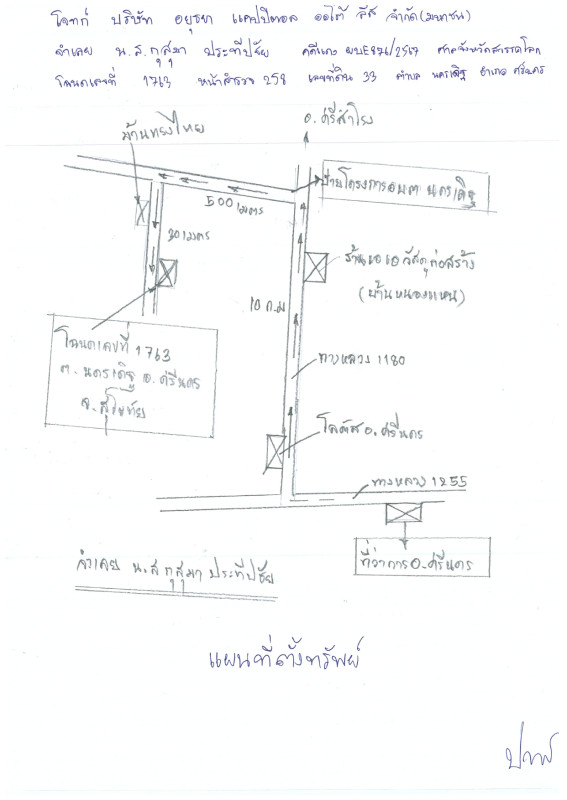 โจทก์ บริษัท อยุธยา แคปปิตอล ออโต้ ลีส จำกัด (มหาชน)
จำเลย น.ส.กุสุมา ประทีปชัย คดีแดง ผบE876/2567 ศาลจังหวัดสวรรคโลก
โฉนดเลขที่ 1763 หน้าสำรวจ 258 เลขที่ดิน 33 ตำบล นครเดิฐ อำเภอ ศรีนคร
อ.ศรีสำโรง
บ้านทรงไทย
ป้ายโครงการอบต นครเดิฐ
500 เมตร
30 เมตร
ร้านเอ เอ วัสดุก่อสร้าง
(บ้านหนองแหน)
10 ก.ม
โฉนดเลขที่ 1763
ต. นครเดิฐ อ.ศรีนคร
จ.สุโขทัย
ทางหลวง 1180
โลตัส อ.ศรีนคร
ทางหลวง 1255
ที่ว่าการ อ.ศรีนคร
จำเลย น.ส กุสุมา ประทีปชัย
แผนที่ตั้งทรัพย์